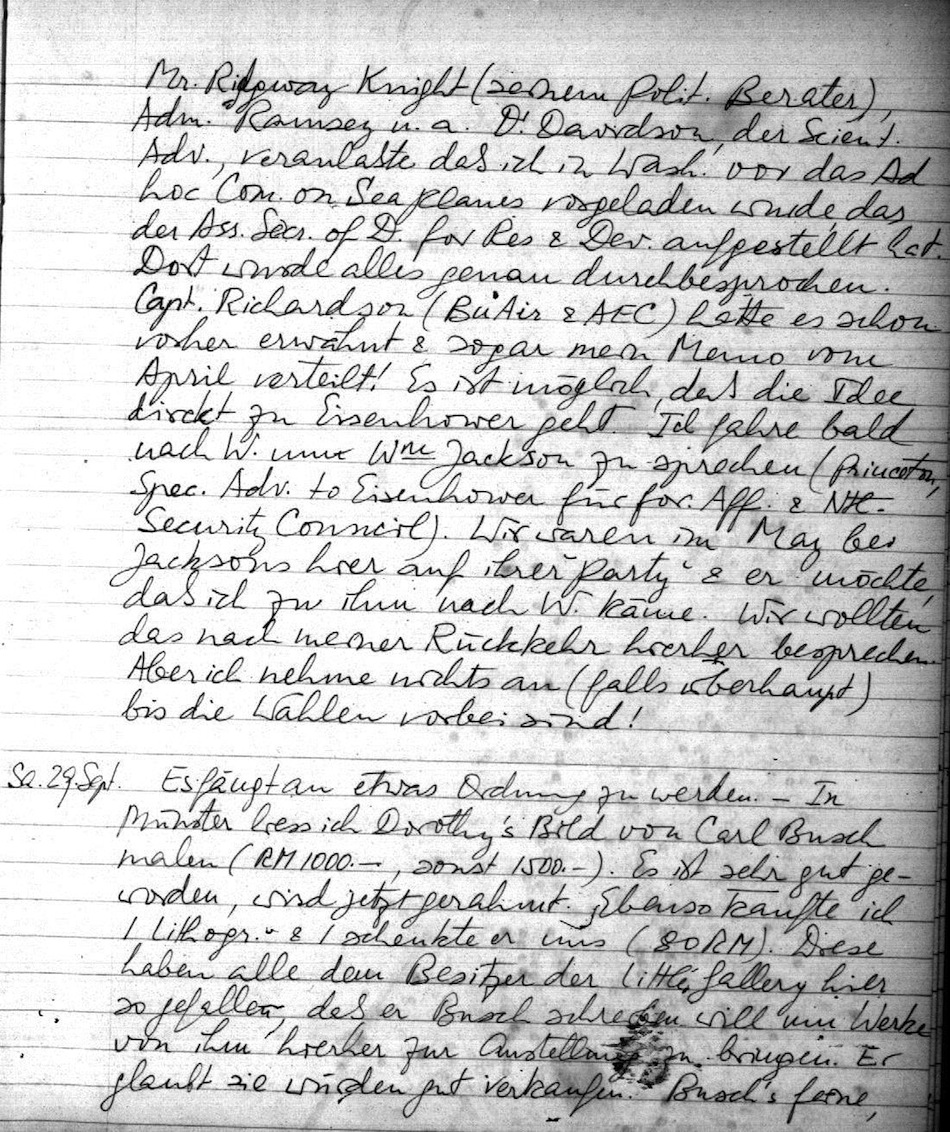 Mr. Ridgway Knight (seinem polit. Berater),
Adm. Ramsey u. a. Dr. Davidson, der Scient.
Adv., veranlaste das ich in Wash. vor das Ad
hoc Com. on Seaplanes vorgeladen wurde das
der Ass. Secr. of D. for Res & Dev. aufgestellt hat.
Dort wurde alles genau durchbesprochen.
Capt. Richardson (BuAir & AEC) hatte es schon
vorher erwähnt & sogar mein Memo vom
April verteilt! Es ist möglich, das die Idee
direkt zu Eisenhower geht. Ich fahre bald
nach W. um Wm Jackson zu sprechen (Princeton,
Spec. Adv. to Eisenhower für for. Aff. & Ntl.
Security Council). Wir waren im May bei
Jacksons hier auf ihrer "party" & er möchte,
das ich zu ihm nach W. käme. Wir wollten
das nach meiner Rückkehr hierher besprechen.
Aber ich nehme nichts an (falls überhaupt)
bis die Wahlen vorbei sind!
Sa. 29. Sept. Es fängt an etwas Ordnung zu werden. – In
Münster liess ich Dorothy's Bild von Carl Busch
malen (RM 1000.–, sonst 1500.–). Es ist sehr gut ge-
worden, wird jetzt gerahmt. Ebenso kaufte ich
1 Lithogr. & 1 schenkte er uns (80 RM). Diese
haben alle dem Besitzer der Little Gallery hier
so gefallen, das er Busch schreiben will um Werke
von ihm hierher zur Austellung zu bringen. Er
glaubt sie würden gut verkaufen. Busch's feine,